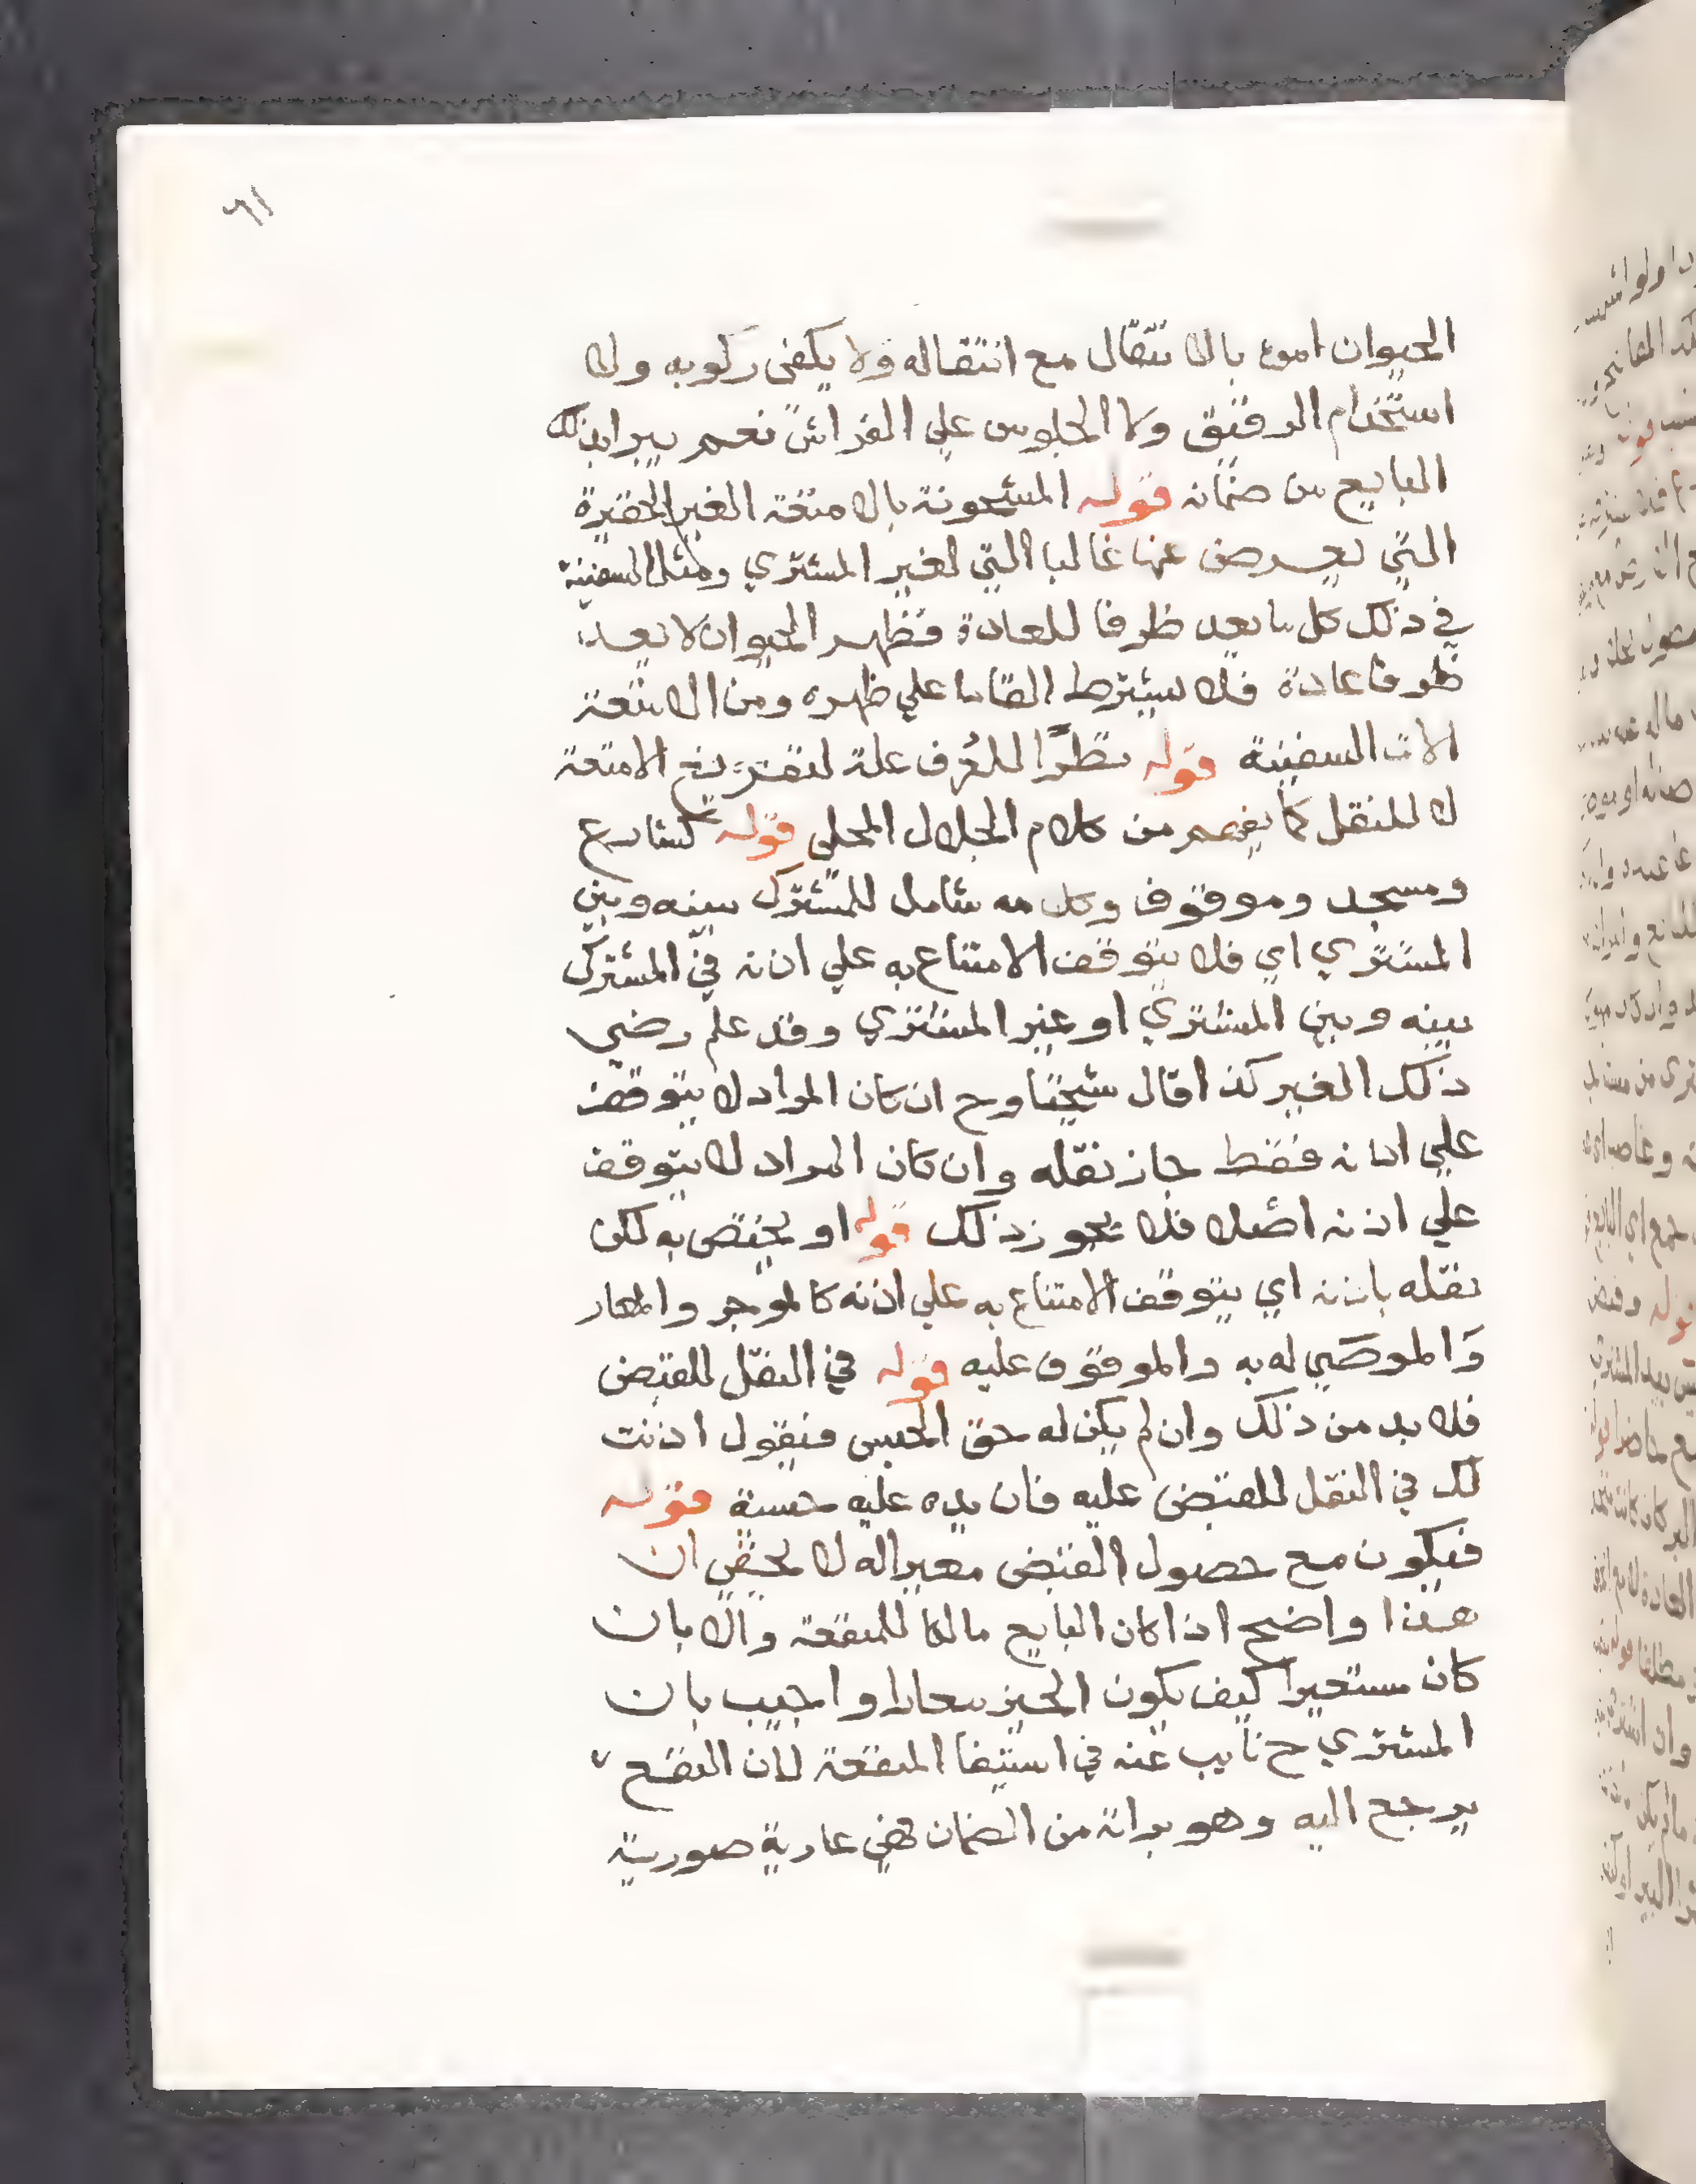 ٦١
الحيوان امره بالانتقال مع انتقاله ولا يكفي ركوبه ولا
استخدام الرقيق ولا الجلوس علي الفراش نعم يبرا بذلك
البايع من ضمانه قوله المشحونة بالامتعة الغير الحقيرة
التي يعرض عنها غالبا التي لغير المشتري ومثل السفينة
في ذلك كل ما يعد ظرفا للعادة فظهر الحيوان لا يعد
ظرفا عادة فلا يشترط القاما علي ظهره ومن الامتعة
الات السفينة قوله نظرًا للعُرف علة لتفريغ الامتعة
لا للنقل كما يفهم من كلام الجلال المحلي قوله كشارع
ومسجد وموقوف وكلامه شامل للمشترك بينه وبين
المشتري اي فلا يتوقف الامتناع به علي اذنه في المشترك
بينه وبين المشتري او غير المشتري وقد علم رضي
ذلك الغير كذا قال شيخنا وح ان كان المراد لا يتوقف
علي اذنه فقط جاز نقله وان كان المراد لا يتوقف
علي اذنه اصلا فلا يجوز ذلك قوله او يختص به لكن
نقله باذنه اي يتوقف الامتناع به علي اذنه كالموجر والمعار
وَالموصَي له به والموقوف عليه قوله في النقل للقبض
فلا بد من ذلك وان لم يكن له حق الحبس فيقول اذنت
لك في النقل للقبض عليه فان يده عليه حسية قوله
فيكون مع حصول القبض معيرا له لا يخفي ان
هذا واضح اذا كان البايع مالكا للمنفعة والا بان
كان مستعيرا كيف يكون الحيز معارا واجيب بان
المشتري ح نايب عنه في استيفا المنفعة لان النفع
يرجع اليه وهو براته من الضمان فهي عارية صورية